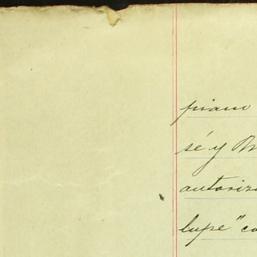 piano
sé y
autoriz
lupe" co